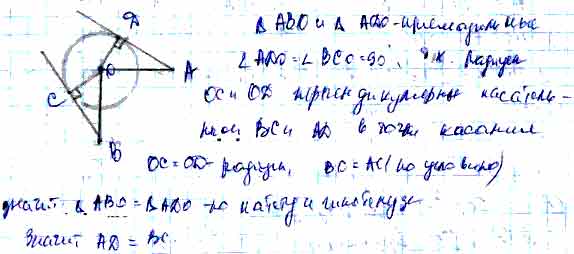 D
Δ ABO и Δ ADO - прямоугольные
∠ ADO = ∠ BCO = 90°, т.к. радиусы
O A
C
OC и OD перпендикулярны касатель-
ной BC и AD в точки касания
B
OC = OD - радиусы, BC = AC (по условию)
значит Δ ABO = Δ ADO по катету и гипотенузе
Значит AD = BC.